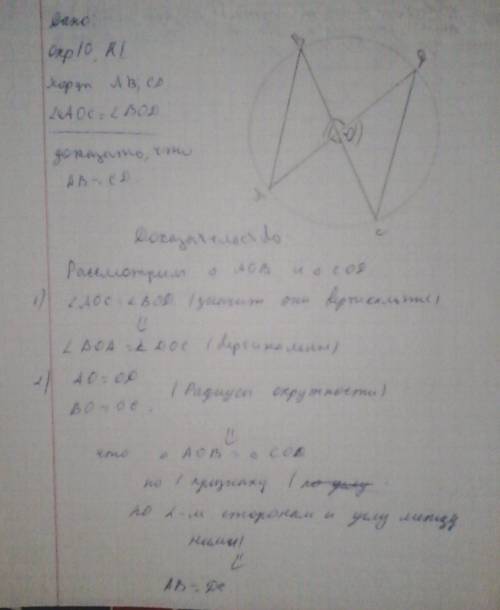 Дано:
Окр(О, R)
хорды АВ, CD
∠AOC = ∠BOD
доказать, что
AB = CD.
B
D
O
A
C
Доказательство:
Рассмотрим △ AOB и △ COD
1) ∠AOC = ∠BOD (значит они вертикальные)
⇓
∠BOA = ∠DOC (вертикальные)
2) AO = OD
BO = OC, (Радиусы окружности)
⇓
что △ AOB = △ COD
по 1 признаку (
по 2-м сторонам и углу между
ними)
⇓
AB = DC